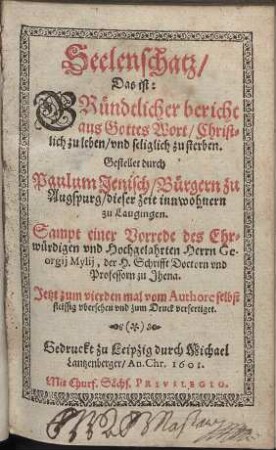 Seelenschatz/
Das ist:
GRündelicher bericht
aus Gottes Wort/ Christ-
lich zu leben/ vnd seliglich zu sterben.
Gestellet durch
Paulum Jenisch/ Bürgern zu
Augspurg/ dieser zeit innwohnern
zu Laugingen.
Sampt einer Vorrede des Ehr-
würdigen vnd Hochgelahrten Herrn Ge-
orgij Mylij, der H. Schrifft Doctorn vnd
Professorn zu Jhena.
Jetzt zum vierden mal vom Authore selbst
fleissig vbersehen vnd zum Druck verfertiget.
(*)
Gedruckt zu Leipzig durch Michael
Lantzenberger/ An. Chr. 1601.
Mit Churf. Sächs. PRIVILEGIO.